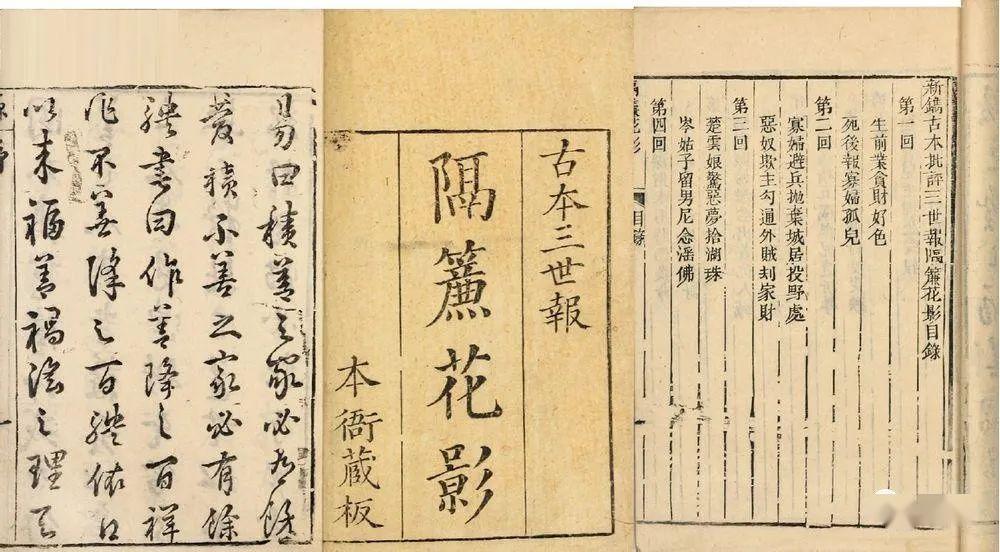 易曰積善之家必有餘
慶積不善之家必有餘
殃書曰作善降之百祥
作不善降之百殃
以來福善禍淫之理
古本三世報
隔簾花影
本衙藏板
新鐫古本批評三世報隔簾花影目錄
第一回
生前業貪財好色
死後報寡婦孤兒
第二回
寡婦避兵抛棄城居投野處
惡奴欺主勾通外賊刦家財
第三回
楚雲娘驚惡夢拾湖珠
第四回
岑姑子留男尼念滛佛
隔簾花影 目錄